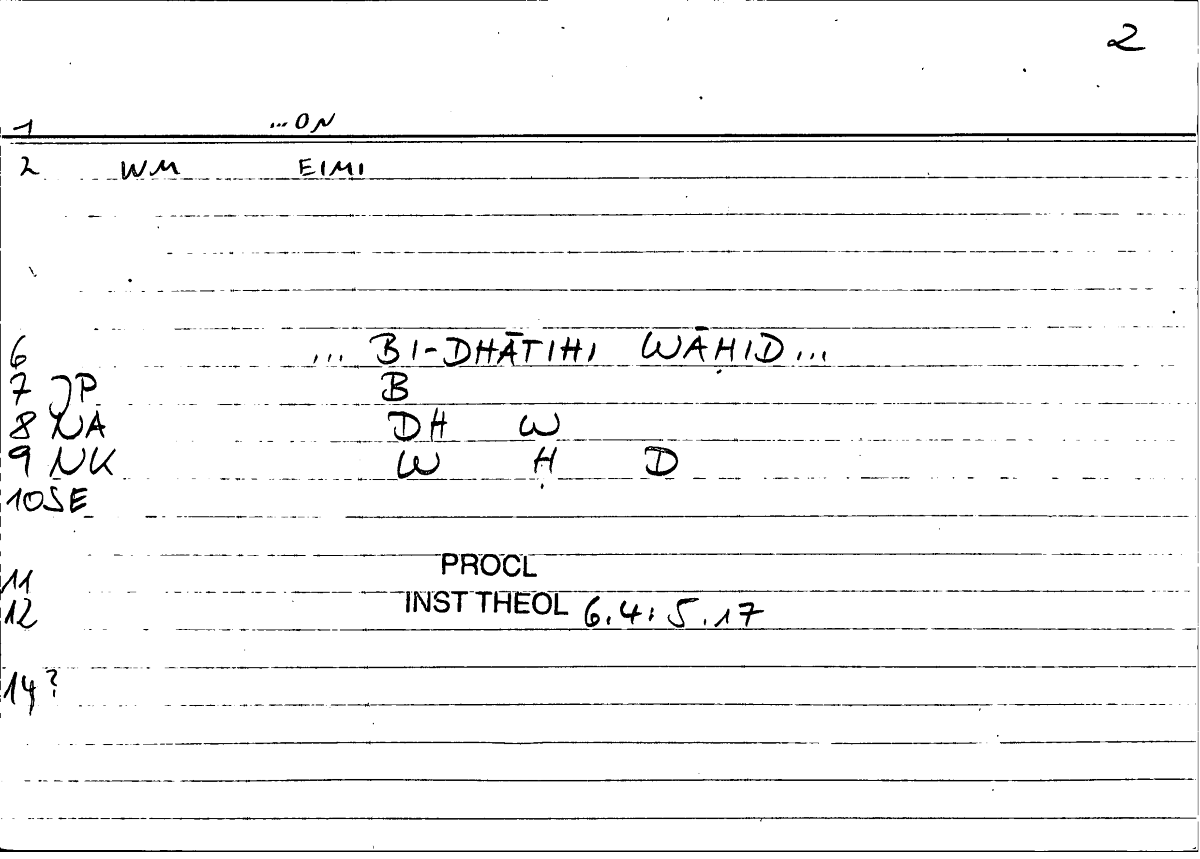 2
1 ...ON
2 WM EIMI
6 ... BI-DHĀTIHI WĀḤID...
7 JP B
8 NA DH W
9 NK W Ḥ D
10 SE
11 PROCL
12 INST THEOL 6.4; 5.17
14?